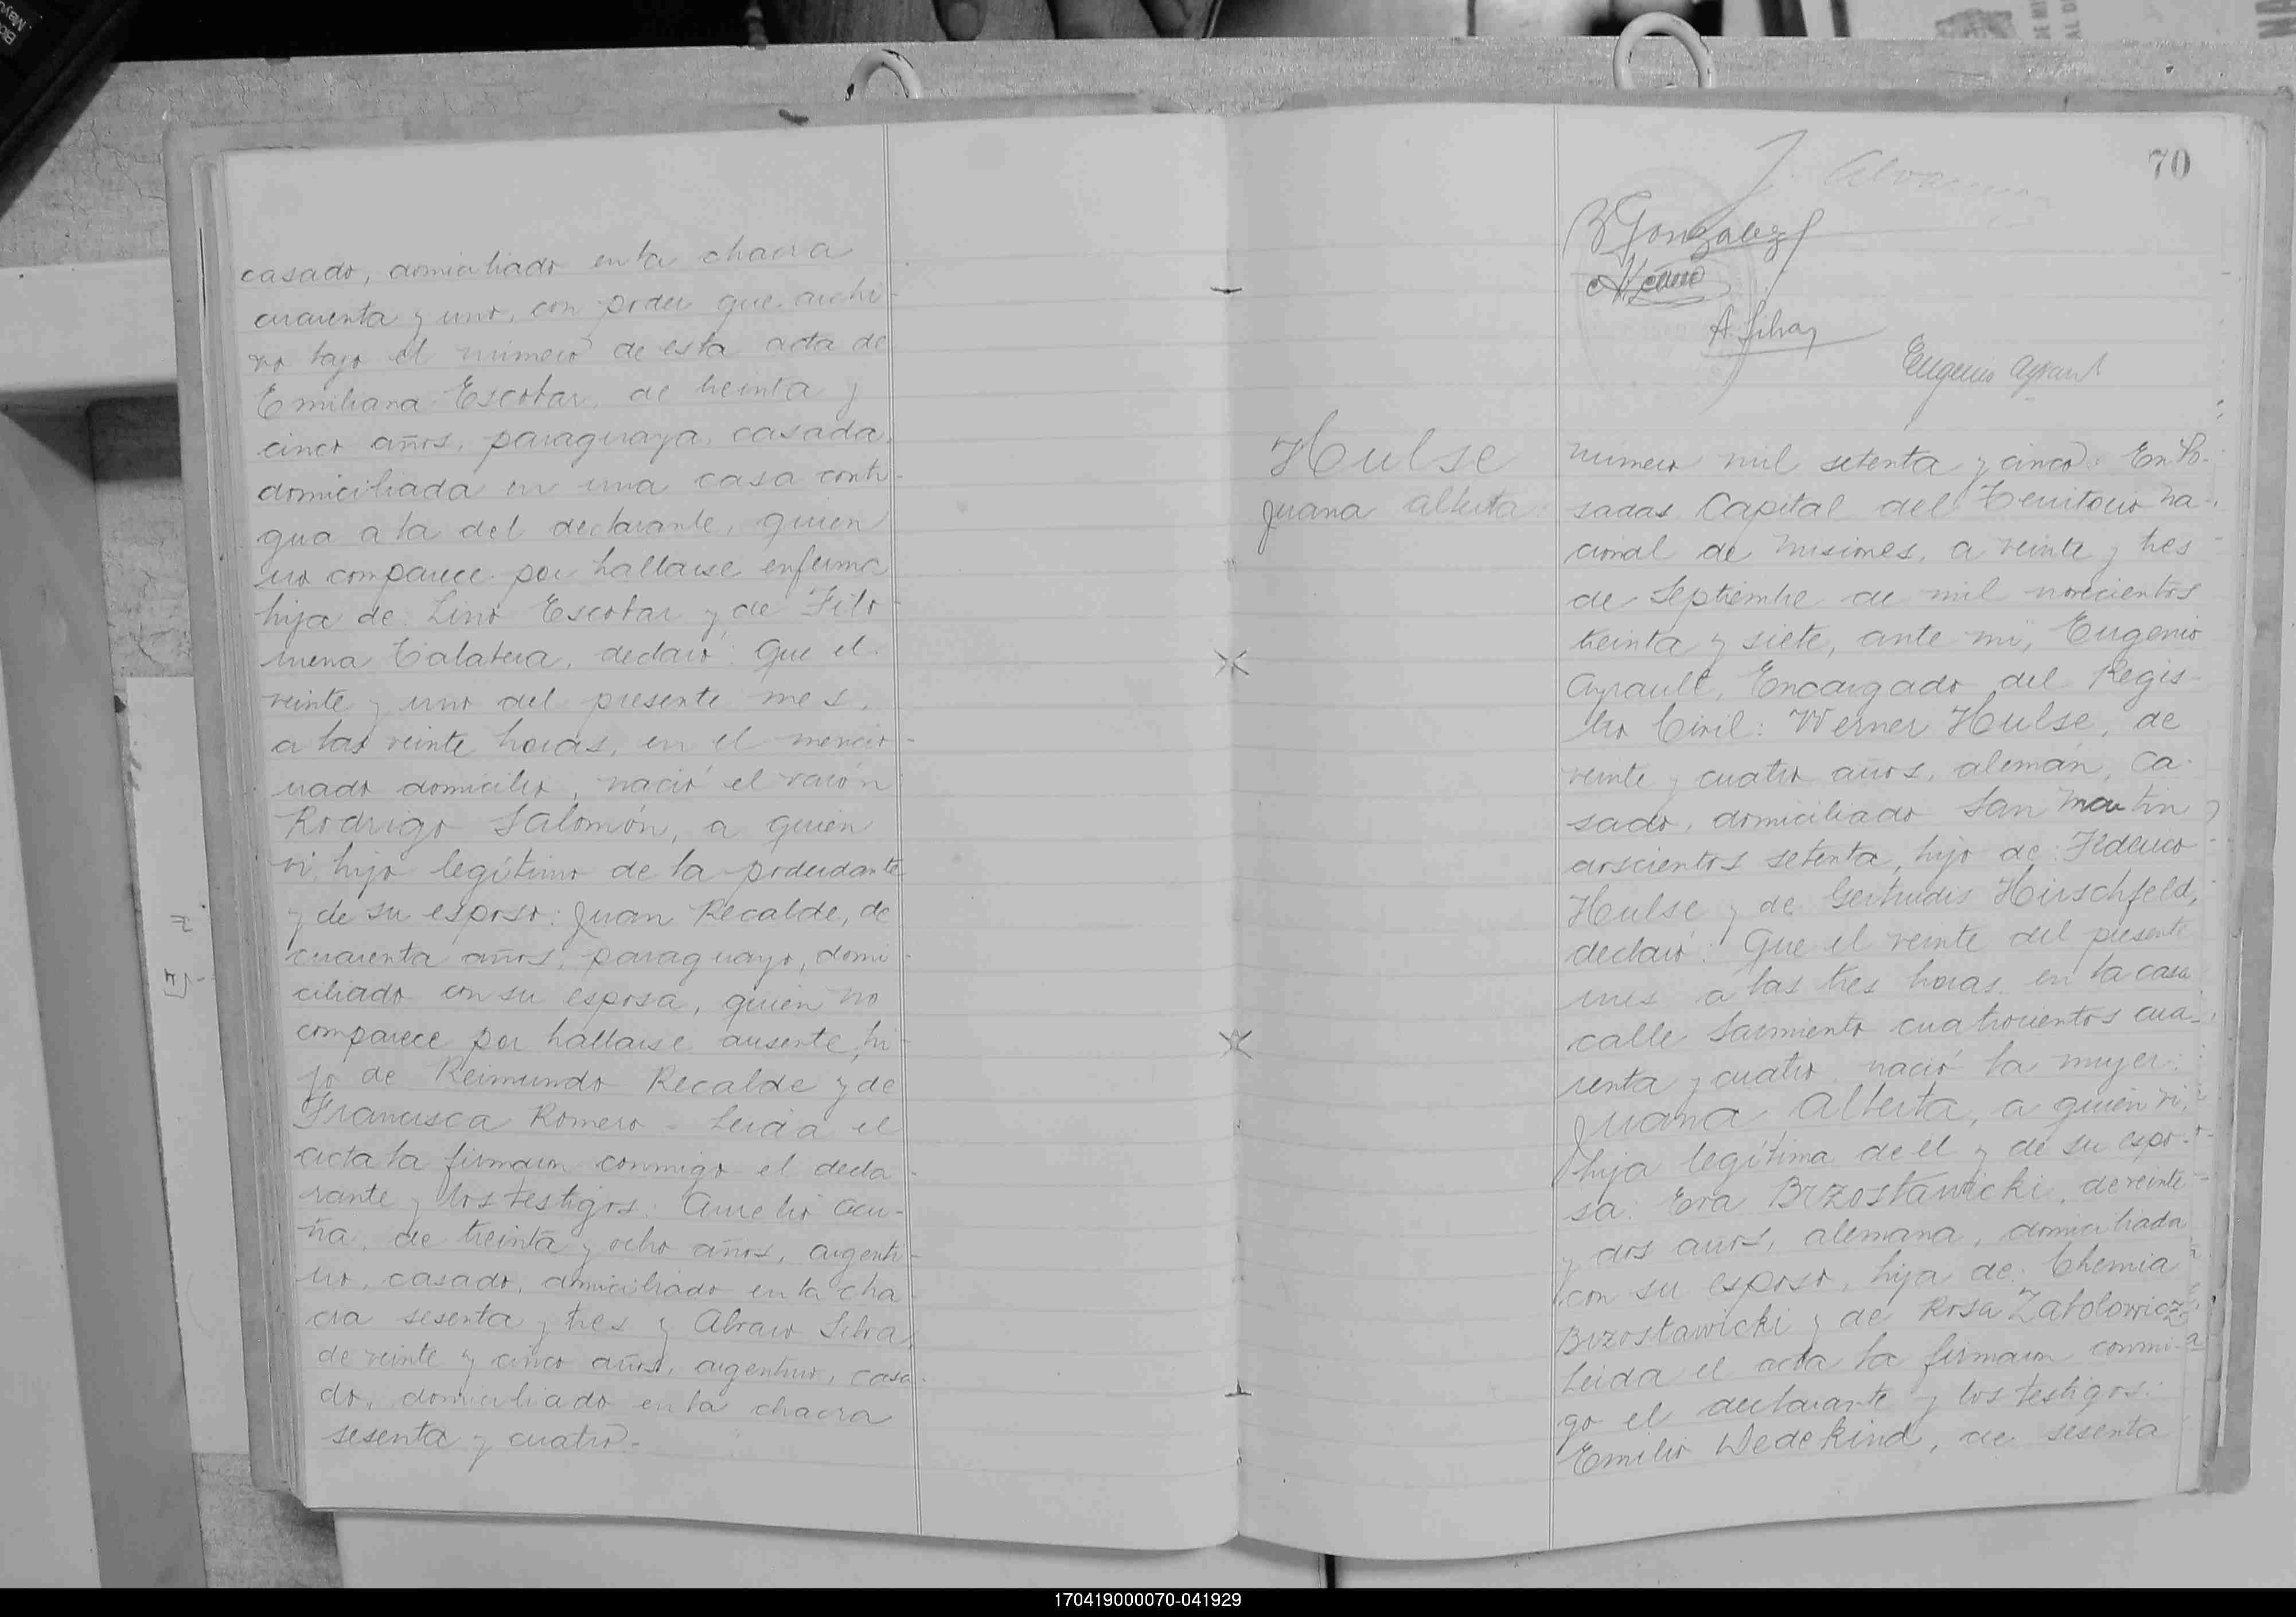 casado, domiciliado en la chacra
cuarenta y uno, con poder que archi-
vo bajo el número de esta acta de
Emiliana Escobar, de treinta y
cinco años, paraguaya, casada,
domiciliada en una casa conti-
gua a la del declarante, quien
no comparece por hallarse enferma
hija de: Lino Escobar y de Filo-
mena Talabera, declaró: Que el
veinte y uno del presente mes,
a las veinte horas, en el mencio-
nado domicilio, nació el varón
Rodrigo Salomón, a quien
vi, hijo legítimo de la poderdante
y de su esposo: Juan Recalde, de
cuarenta años, paraguayo, domi-
ciliado con su esposa, quien no
comparece por hallarse ausente, hi-
jo de Reimundo Recalde y de
Francisca Romero - Leida el
acta la firmaron conmigo el decla-
rante y los testigos: Aurelio Acu-
ña, de treinta y ocho años, argenti-
no, casado, domiciliado en la cha-
cra sesenta y tres y Alvaro Silva,
de veinte y cinco años, argentino, casa-
do, domiciliado en la chacra
sesenta y cuatro.-
70
Gonzalez
A. Silva
Eugenio Ayrault
Hulse
Juana Alberta
Número mil setenta y cinco: En Po-
sadas Capital del Territorio Na-
cional de Misiones, a veinte y tres
de Septiembre de mil novecientos
treinta y siete, ante mi, Eugenio
Ayrault, Encargado del Regis-
tro Civil: Werner Hulse, de
veinte y cuatro años, alemán, ca-
sado, domiciliado San Martin
doscientos setenta, hijo de: Federico
Hulse y de Gertrudis Hirschfeld,
declaró: Que el veinte del presente
mes a las tres horas, en la casa
calle Sarmiento cuatrocientos cua-
renta y cuatro, nació la mujer:
Juana Alberta, a quien vi,
hija legítima de el y de su espo-
sa: Eva Brzostawicki, de veinte
y dos años, alemana, domiciliada
con su esposo, hija de: Chemia
Brzostawicki y de Rosa Zabolowicz
Leida el acta la firmaron conmi-
go el declarante y los testigos:
Emilio Wedekind, de sesenta
170419000070-041929